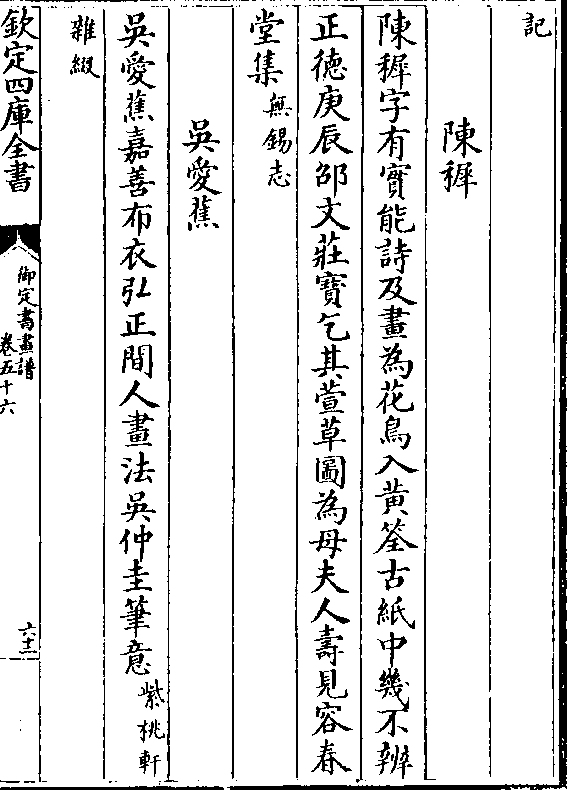 記
陳穉
陳穉字有實能詩及畫為花鳥入黄筌古紙中幾不辨
正徳庚辰邵文莊寶乞其萱草圖為母夫人壽見容春
堂集無錫志
吳愛蕉
吳愛蕉嘉善布衣弘正間人畫法吳仲圭筆意紫桃軒
雜綴
欽定四庫全書
御定書畫譜
卷五十六